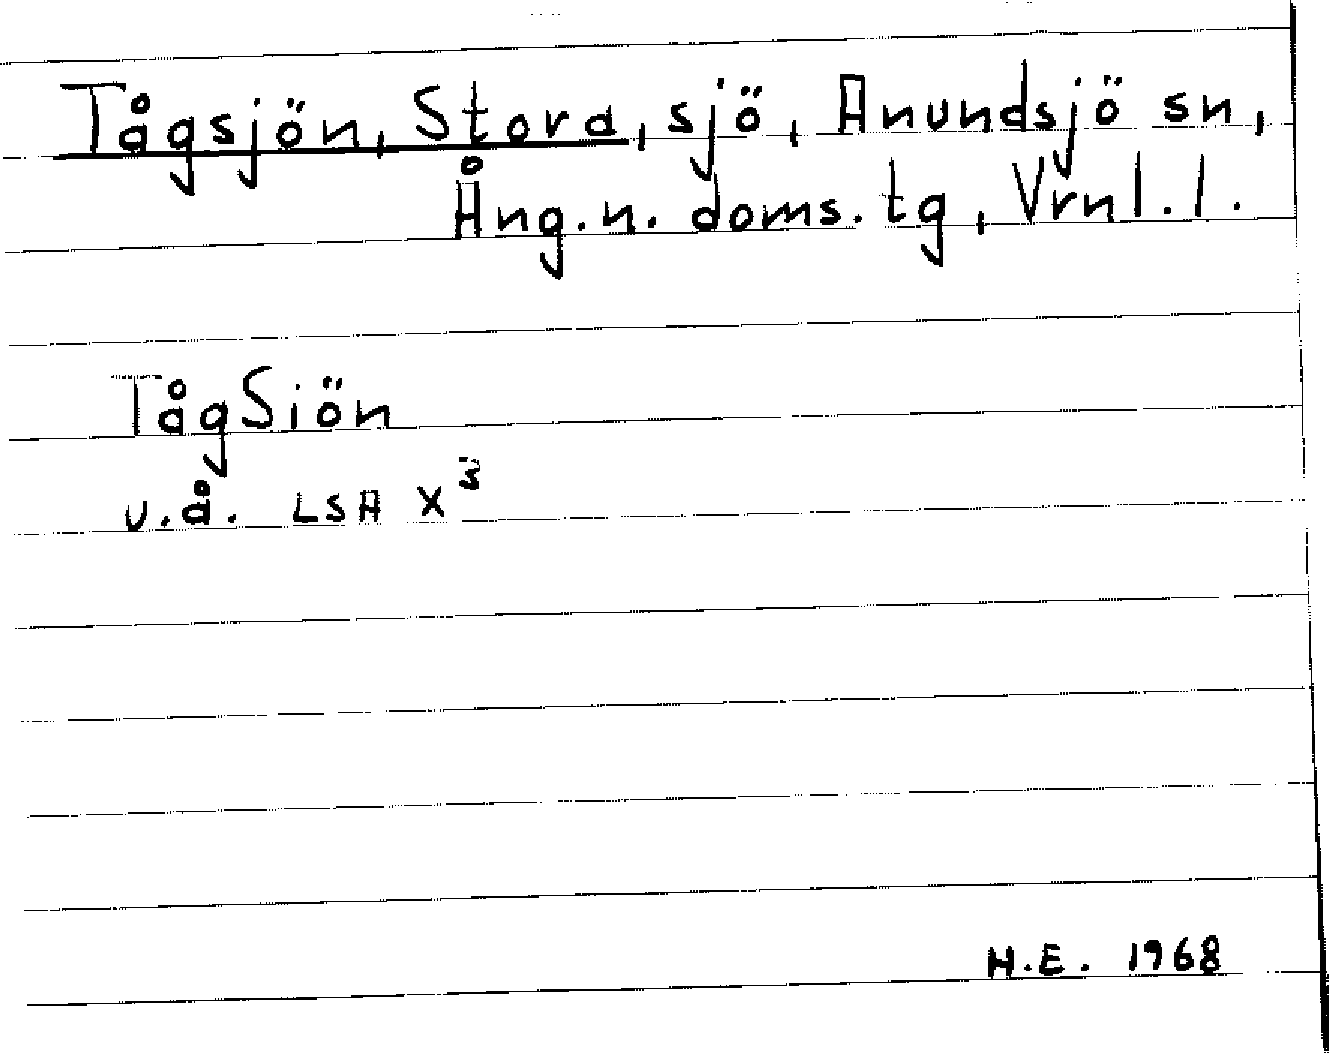 Tågsjön, Stora, sjö, Anundsjö sn,
Ång.n. doms. tg, Vrnl. l.
TågSiön
u.å. LSA X³
H.E. 1968